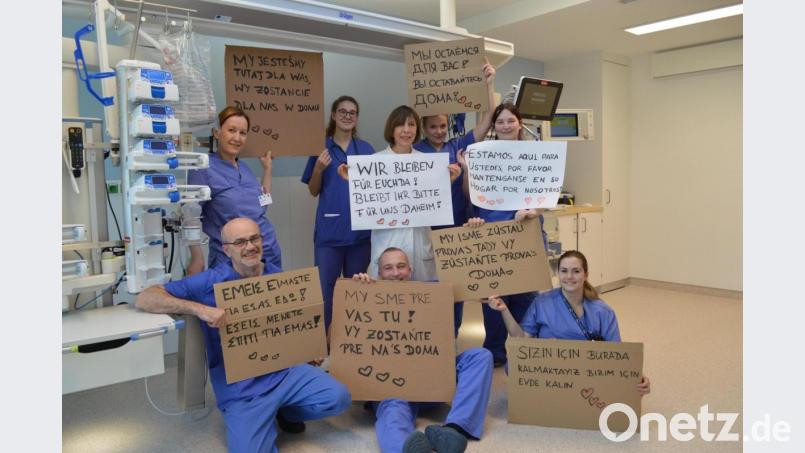 MY JESTEŚMY
TUTAJ DLA WAS,
WY ZOSTAŃCIE
DLA NAS W DOMU
МЫ ОСТАЁМСЯ
ДЛЯ ВАС!
ВЫ ОСТАВАЙТЕСЬ
ДОМА!
WIR BLEIBEN
FÜR EUCH DA!
BLEIBT IHR BITTE
FÜR UNS DAHEIM!
ESTAMOS AQUI PARA
USTEDES, POR FAVOR
MANTENGANSE EN SU
HOGAR POR NOSOTROS!
MY JSME ZŮSTALI
PRO VÁS TADY VY
ZŮSTAŇTE PRO VÁS
DOMA
ΕΜΕΙΣ ΕΙΜΑΣΤΕ
ΓΙΑ ΕΣΑΣ ΕΔΩ!
ΕΣΕΙΣ ΜΕΝΕΤΕ
ΣΠΙΤΙ ΓΙΑ ΕΜΑΣ!
MY SME PRE
VÁS TU!
VY ZOSTAŇTE
PRE NÁS DOMA
SIZIN IÇIN BURADA
KALMAKTAYIZ BIZIM IÇIN
EVDE KALIN
Onetz.de